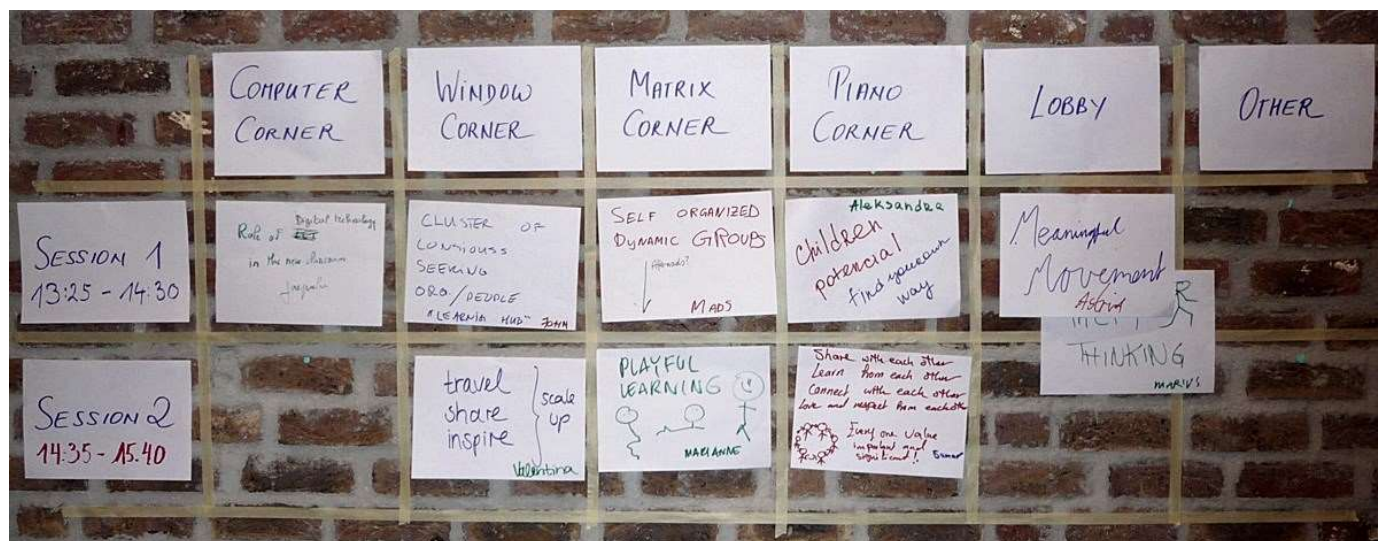 COMPUTER
CORNER
WINDOW
CORNER
MATRIX
CORNER
PIANO
CORNER
LOBBY
OTHER
SESSION 1
13:25 - 14:30
Digital technology
Role of
in the new
CLUSTER OF
CONSIOUSS
SEEKING
ORG./PEOPLE
"LEARNIN HUB" JOHN
SELF ORGANIZED
DYNAMIC GROUPS
MADS
Aleksandra
Children
potencial
find your own
way
Meaningful
Movement
Astrid
THINKING
MARIUS
SESSION 2
14:35 - 15.40
travel
share
inspire
scale
up
Valentina
PLAYFUL
LEARNING
MARIANNE
Share with each other
Learn from each other
Connect with each other
Love and respect from each other
Every one value
important and
significant!